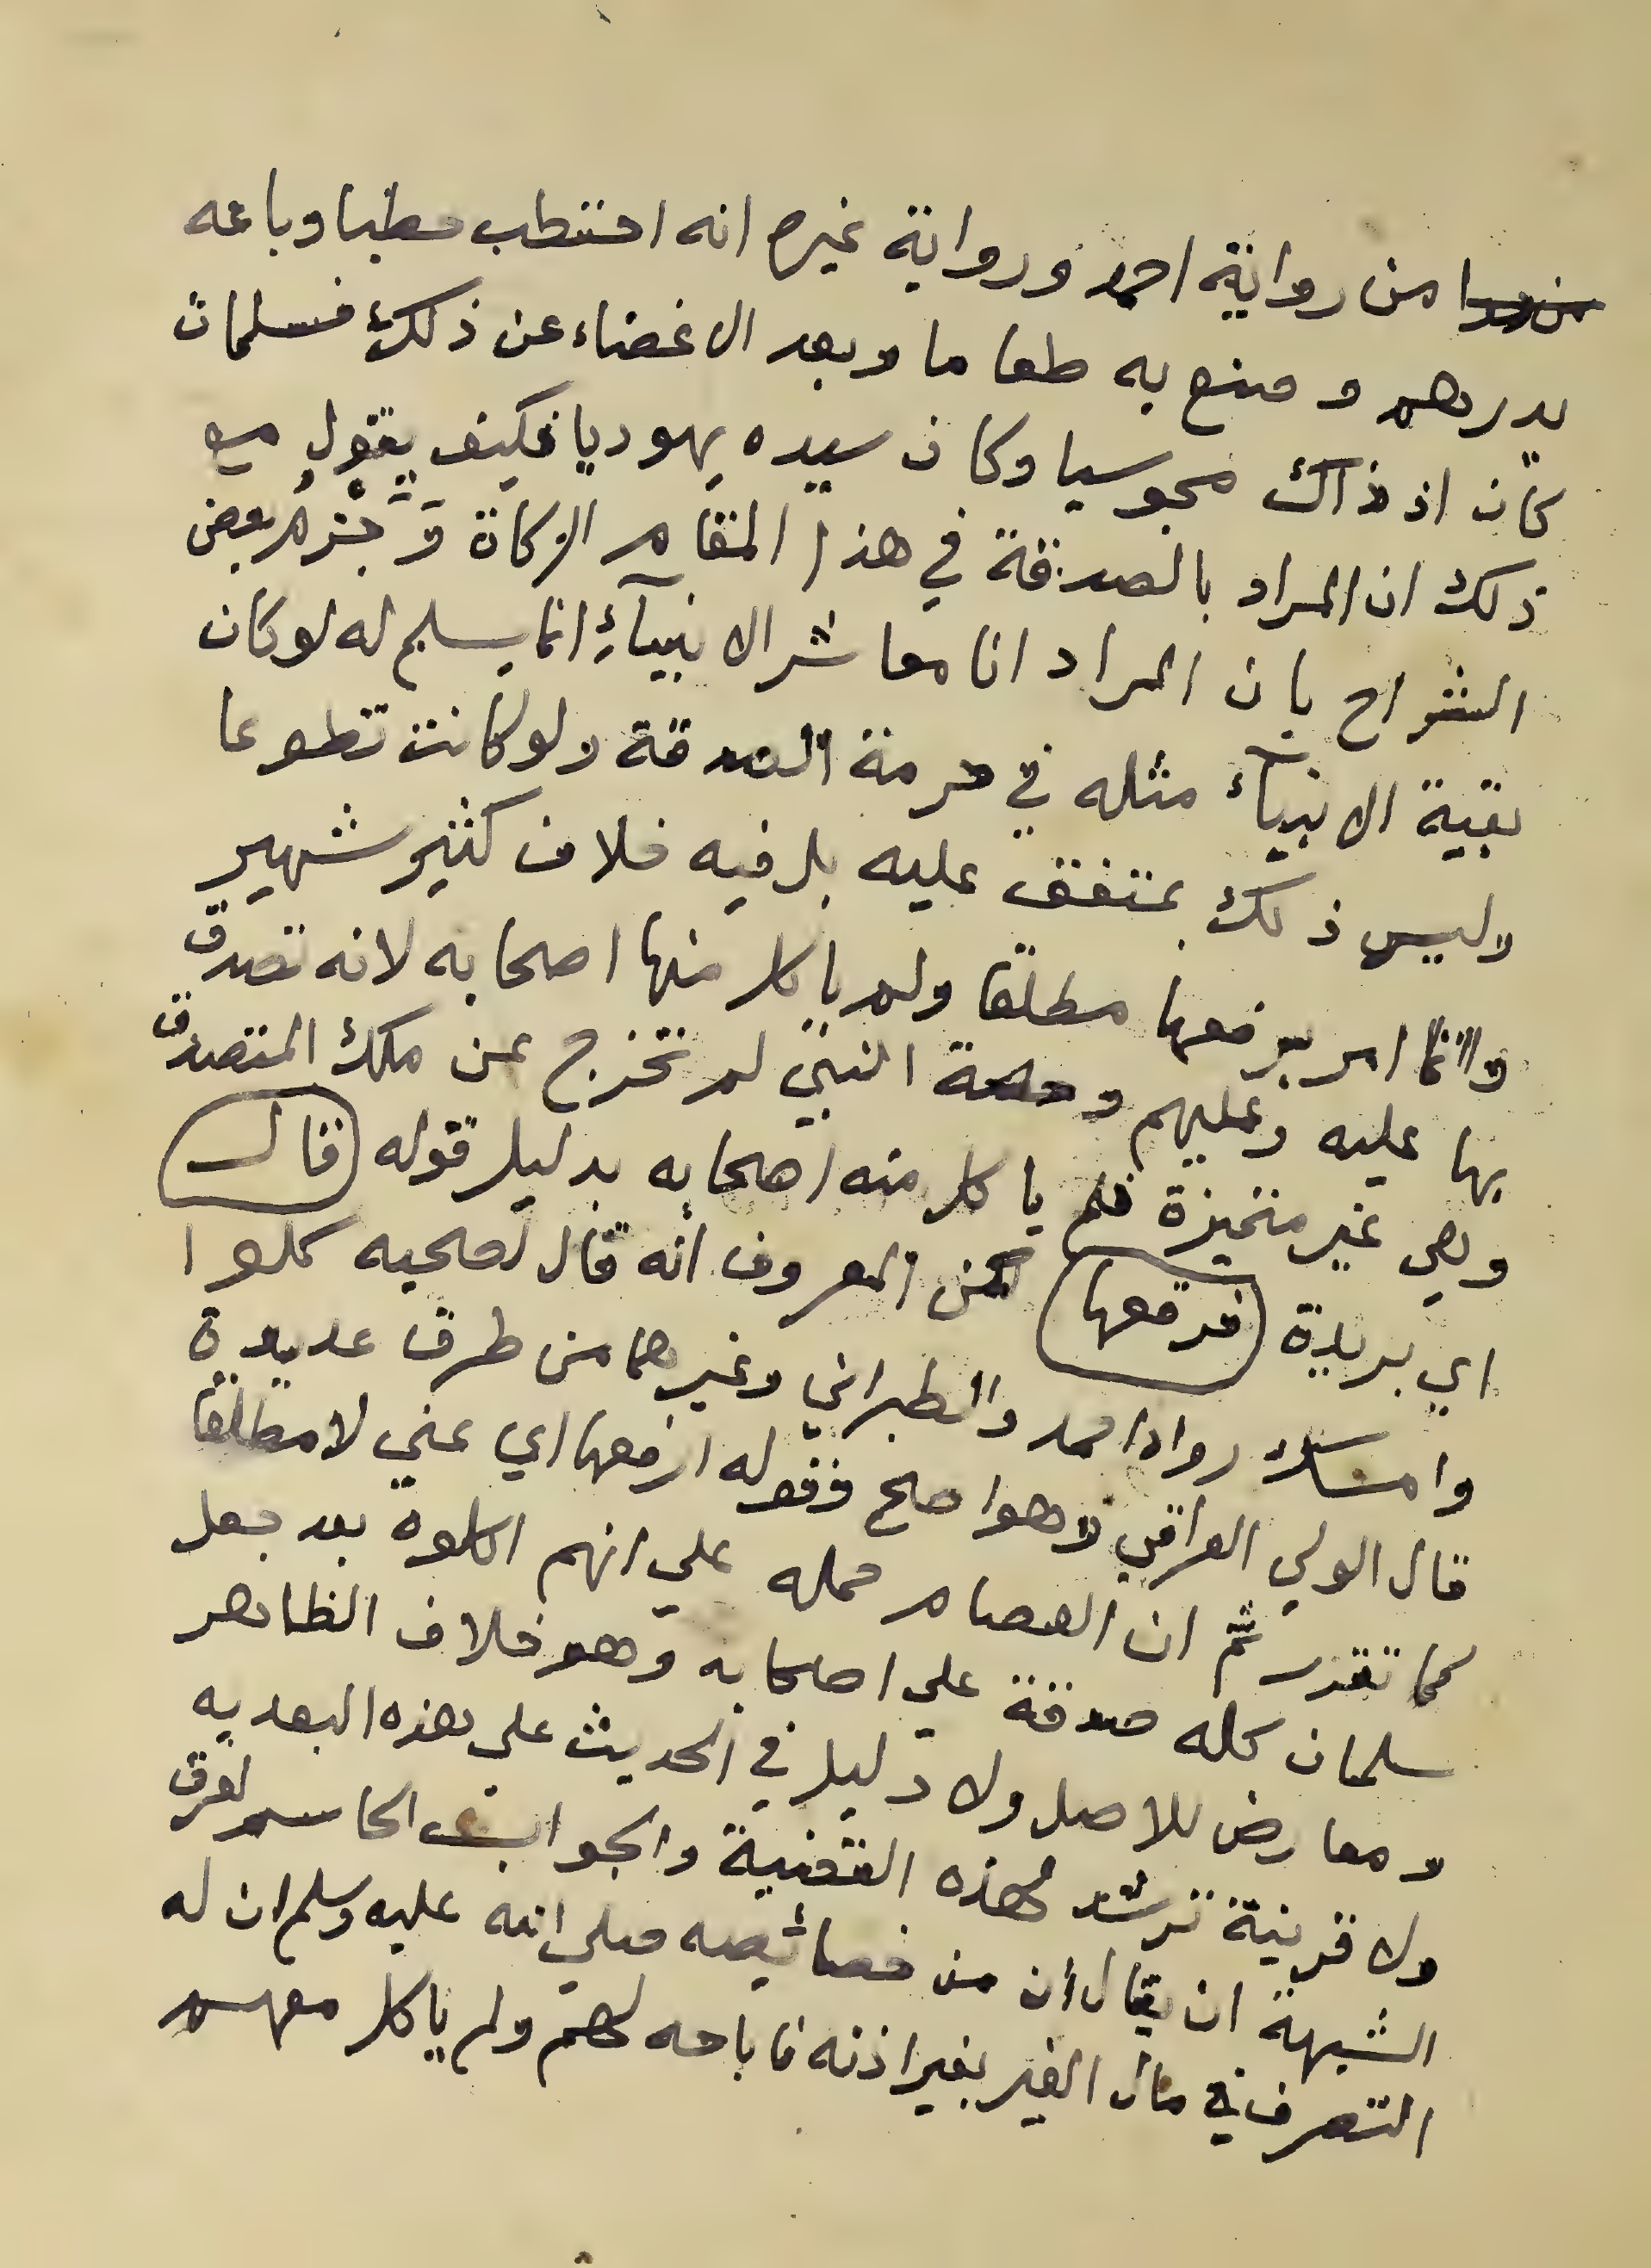 من رواية احمد ورواية غيره انه احتطب حطبا وباعه
بدرهم وصنع به طعاما وبعد الاغضاء عن ذلك فسلمان
كان اذ ذاك مجوسيا وكان سيده يهوديا فكيف يقول مع
ذلك ان المراد بالصدقة في هذا المقام الزكاة وَجَزْمُ بعض
الشراح بان المراد انا معاشر الانبيآءِ انما يسلم له لو كان
بقية الانبيآء مثله في حرمة الصدقة ولو كانت تطوعا
وليس ذلك بمتفق عليه بل فيه خلاف كثير شهير
وانما امر برفعها مطلقا ولم ياكل منها اصحابه لانه تصدق
بها عليه وعليهم وحصة النبي لم تخرج عن ملك المتصدق
وهي غير متميزة فلم ياكل منه اصحابه بدليل قوله (قال)
اي بريدة (فرفعها) لكن المعروف انه قال لصحبه كلوا
وامسك رواه احمد والطبراني وغيرهما من طرق عديدة
قال الولي العراقي وهو اصح فقوله ارفعها اي عني لا مطلقا
كما تقرر ثم ان العصام حمله علي انهم اكلوه بعد جعل
سلمان كله صدقة علي اصحابه وهو خلاف الظاهر
ومعارض للاصل ولا دليل في الحديث علي هذه البعديه
ولا قرينة ترشد لهذه القضية والجواب الحاسم لعرق
الشبهة ان يقال أن من خصائصه صلي الله عليه وسلم ان له
التصرف في مال الغير بغير اذنه فاباحه لهم ولم ياكل معهم